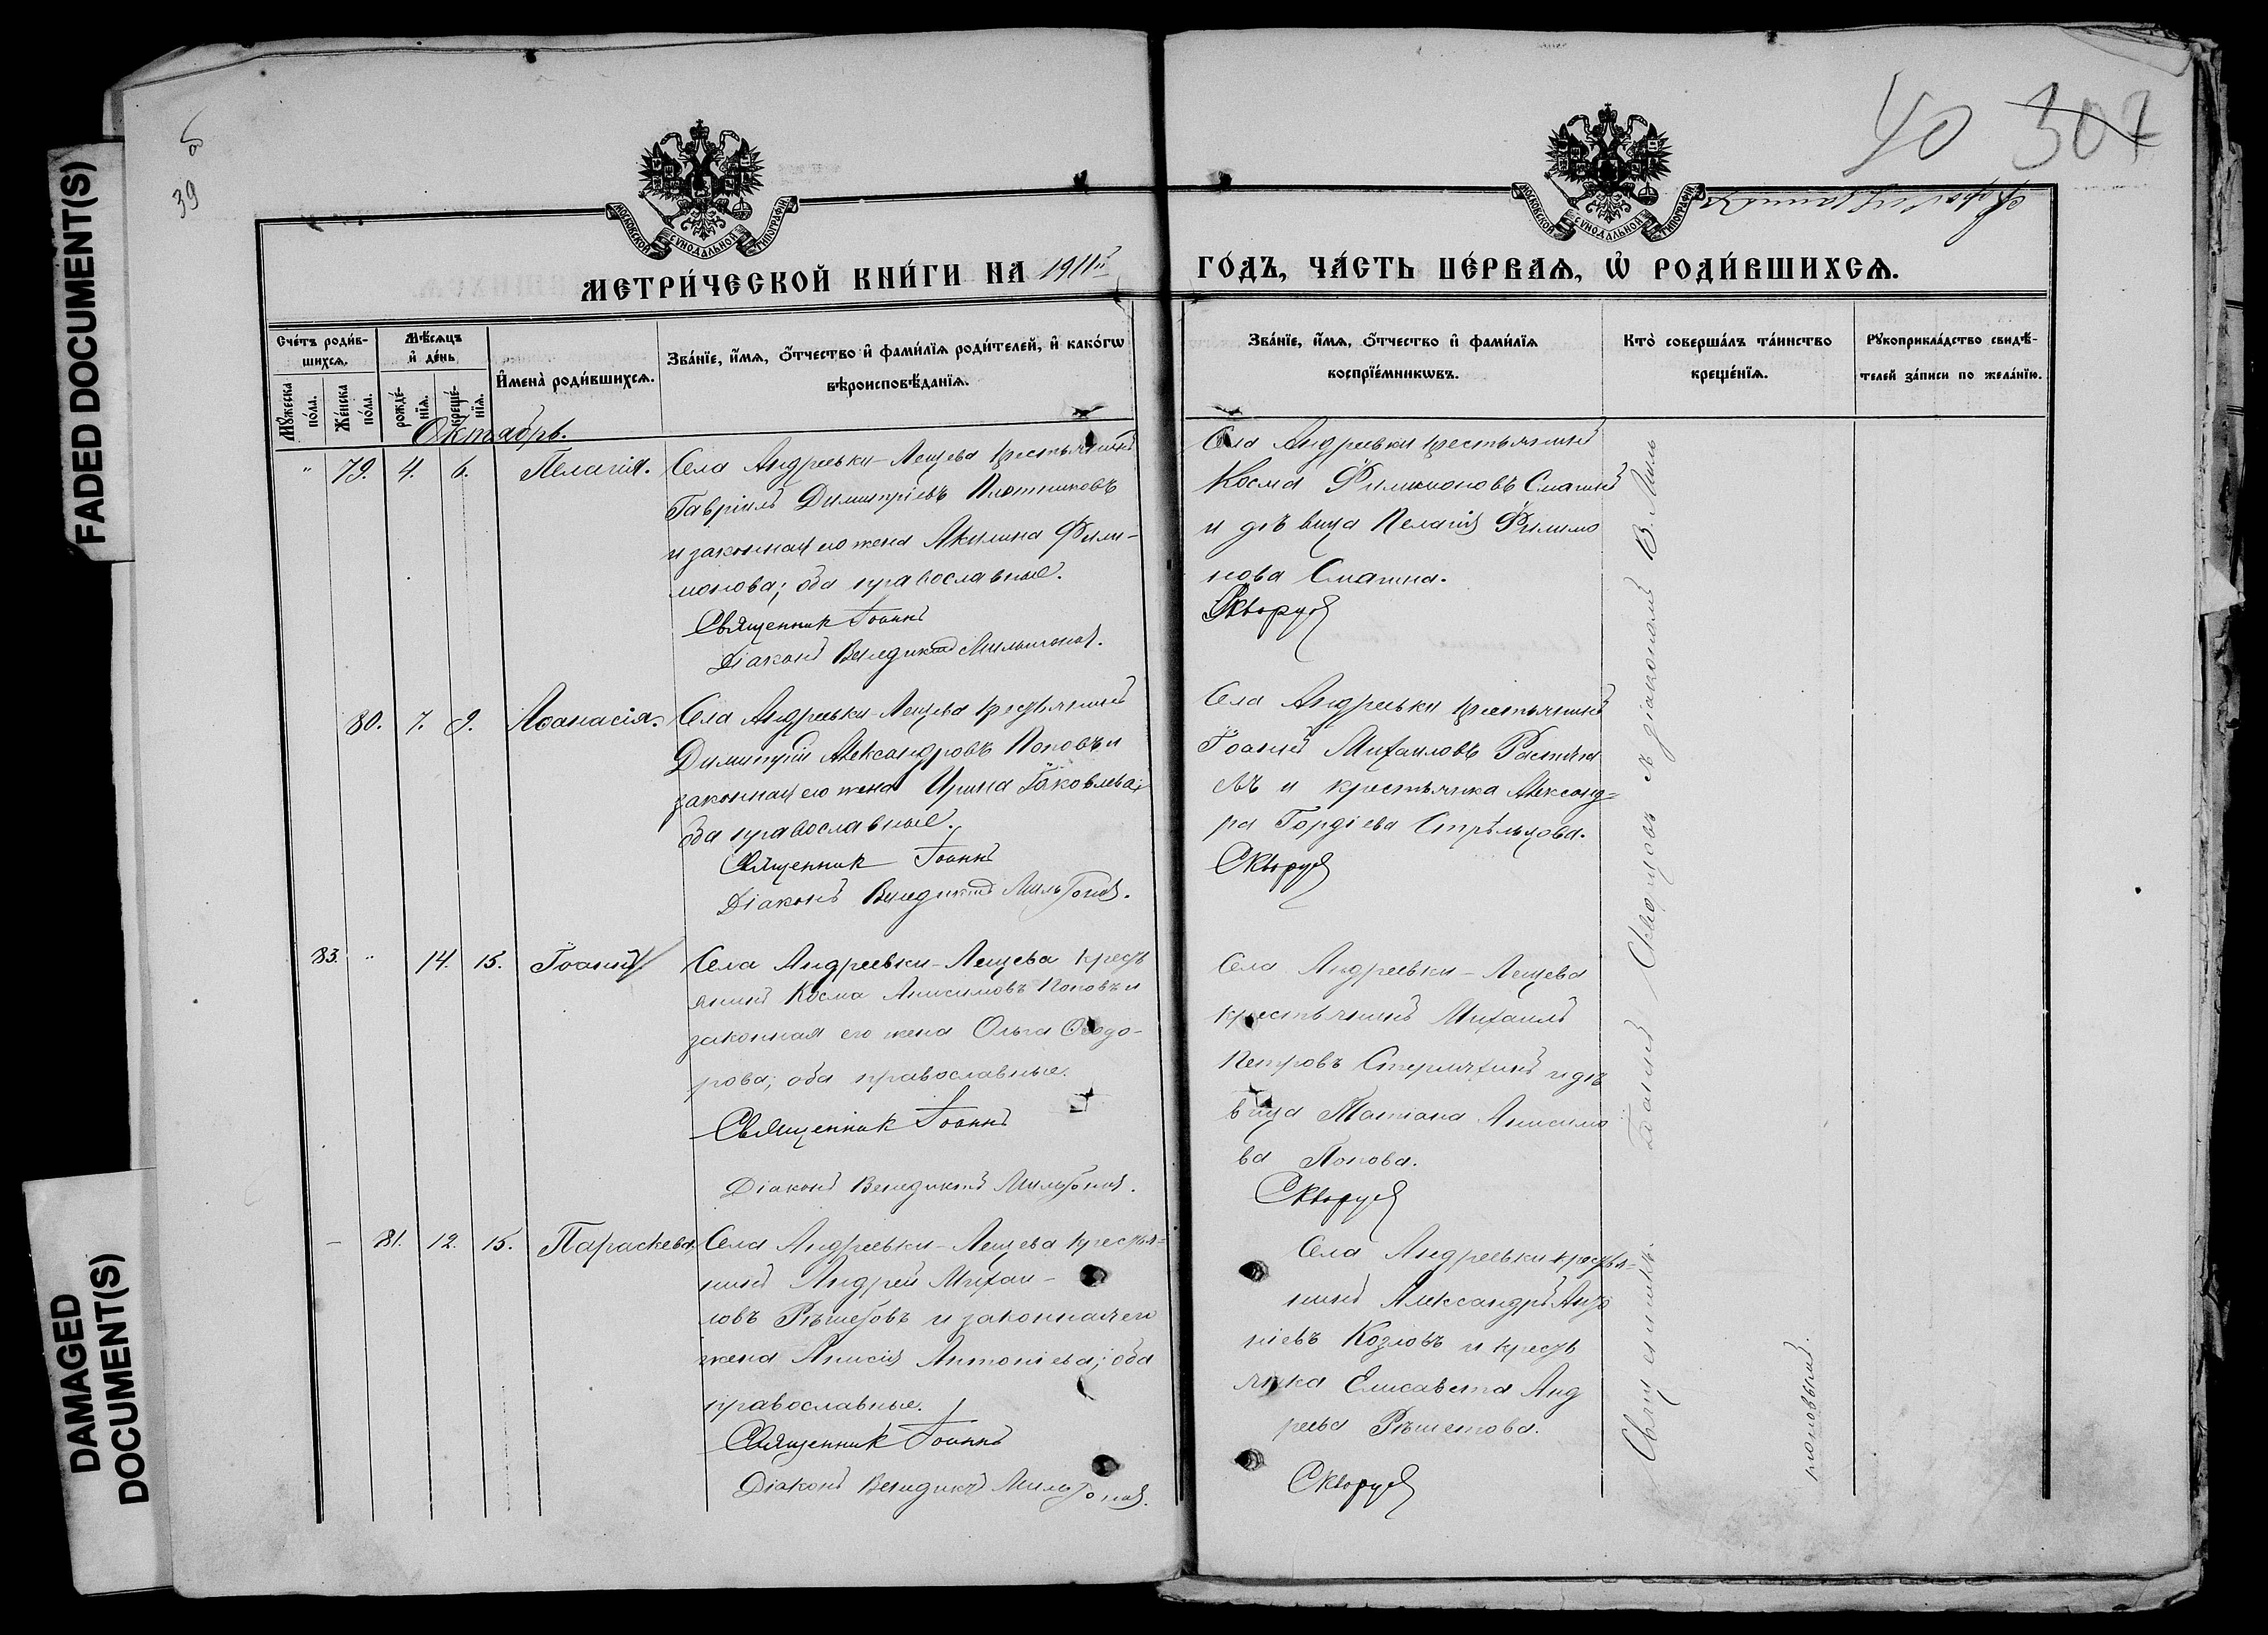 FADED DOCUMENT(S)
DAMAGED
DOCUMENT(S)
39
40 307
МОСКОВСКОЙ СѴНОДАЛЬНОЙ ТИПОГРАФІИ
МОСКОВСКОЙ СѴНОДАЛЬНОЙ ТИПОГРАФІИ
МЕТРИ́ЧЕСКОЙ КНИ́ГИ НА 1911й
ГО́ДЪ, ЧА́СТЬ ПЕ́РВАѦ, Ѡ҆ РОДИ́ВШИХСѦ.
Сче́тъ роди́в-
шихсѧ.
Мꙋ́жеска по́ла.
Же́нска по́ла.
Мѣ́сѧцъ
и҆ де́нь
рожде́-
нїѧ.
креще́-
нїѧ.
И҆мена̀ роди́вшихсѧ.
Зва́нїе, и҆́мѧ, ѻ҆́тчество и҆ фами́лїѧ роди́телей, и҆ како́гѡ
вѣроисповѣ́данїѧ.
Зва́нїе, и҆́мѧ, ѻ҆́тчество и҆ фами́лїѧ
воспрїе́мникѡвъ.
Кто̀ соверша́лъ та́инство
креще́нїѧ.
Рꙋкоприкла́дство свидѣ́-
телей за́писи по жела́нїю.
Октябрь.
" 79. 4. 6. Пелагія. Села Андреевки-Лещева крестьянинъ
Гавріилъ Димитріевъ Плотниковъ
и законная его жена Акилина Фили-
монова; оба православные.
Священник Іоаннъ
Діаконъ Венедиктъ Мильтоновъ.
Села Андреевки крестьянинъ
Косма Филимоновъ Смагинъ
и дѣвица Пелагія Филимо
нова Смагина.
Скворцов
80. 7. 9. Аѳанасія. Села Андреевки-Лещева крестьянинъ
Димитрій Александровъ Поповъ и
законная его жена Ирина Іаковлева;
оба православные.
Священник Іоаннъ
Діаконъ Венедиктъ Мильтоновъ.
Села Андреевки крестьянинъ
Іоаннъ Михаиловъ
и крестьянка Александ-
ра Гордіева Стрѣльцова.
Скворцов
83. " 14. 15. Іоаннъ. Села Андреевки-Лещева кресть
янинъ Косма Анисимовъ Поповъ и
законная его жена Ольга Ѳеодо-
рова; оба православные.
Священник Іоаннъ
Діаконъ Венедиктъ Мильтоновъ.
Села Андреевки-Лещева
крестьянинъ Михаилъ
Петровъ и дѣ
вица Татіана Анисимо
ва Попова.
Скворцов
- 81. 12. 15. Параскева. Села Андреевки-Лещева крестья-
нинъ Андрей Михаи-
ловъ Рѣшетовъ и законная его
жена Анисія Антоніева; оба
православные.
Священник Іоаннъ
Діаконъ Венедиктъ Мильтоновъ.
Села Андреевки крестья-
нинъ Александръ Анто
ніевъ Козловъ и кресть
янка Елисавета Анд
реева Рѣшетова.
Скворцов
Священникъ Іоаннъ Скворцовъ съ діакономъ В. Миль
тоновымъ.